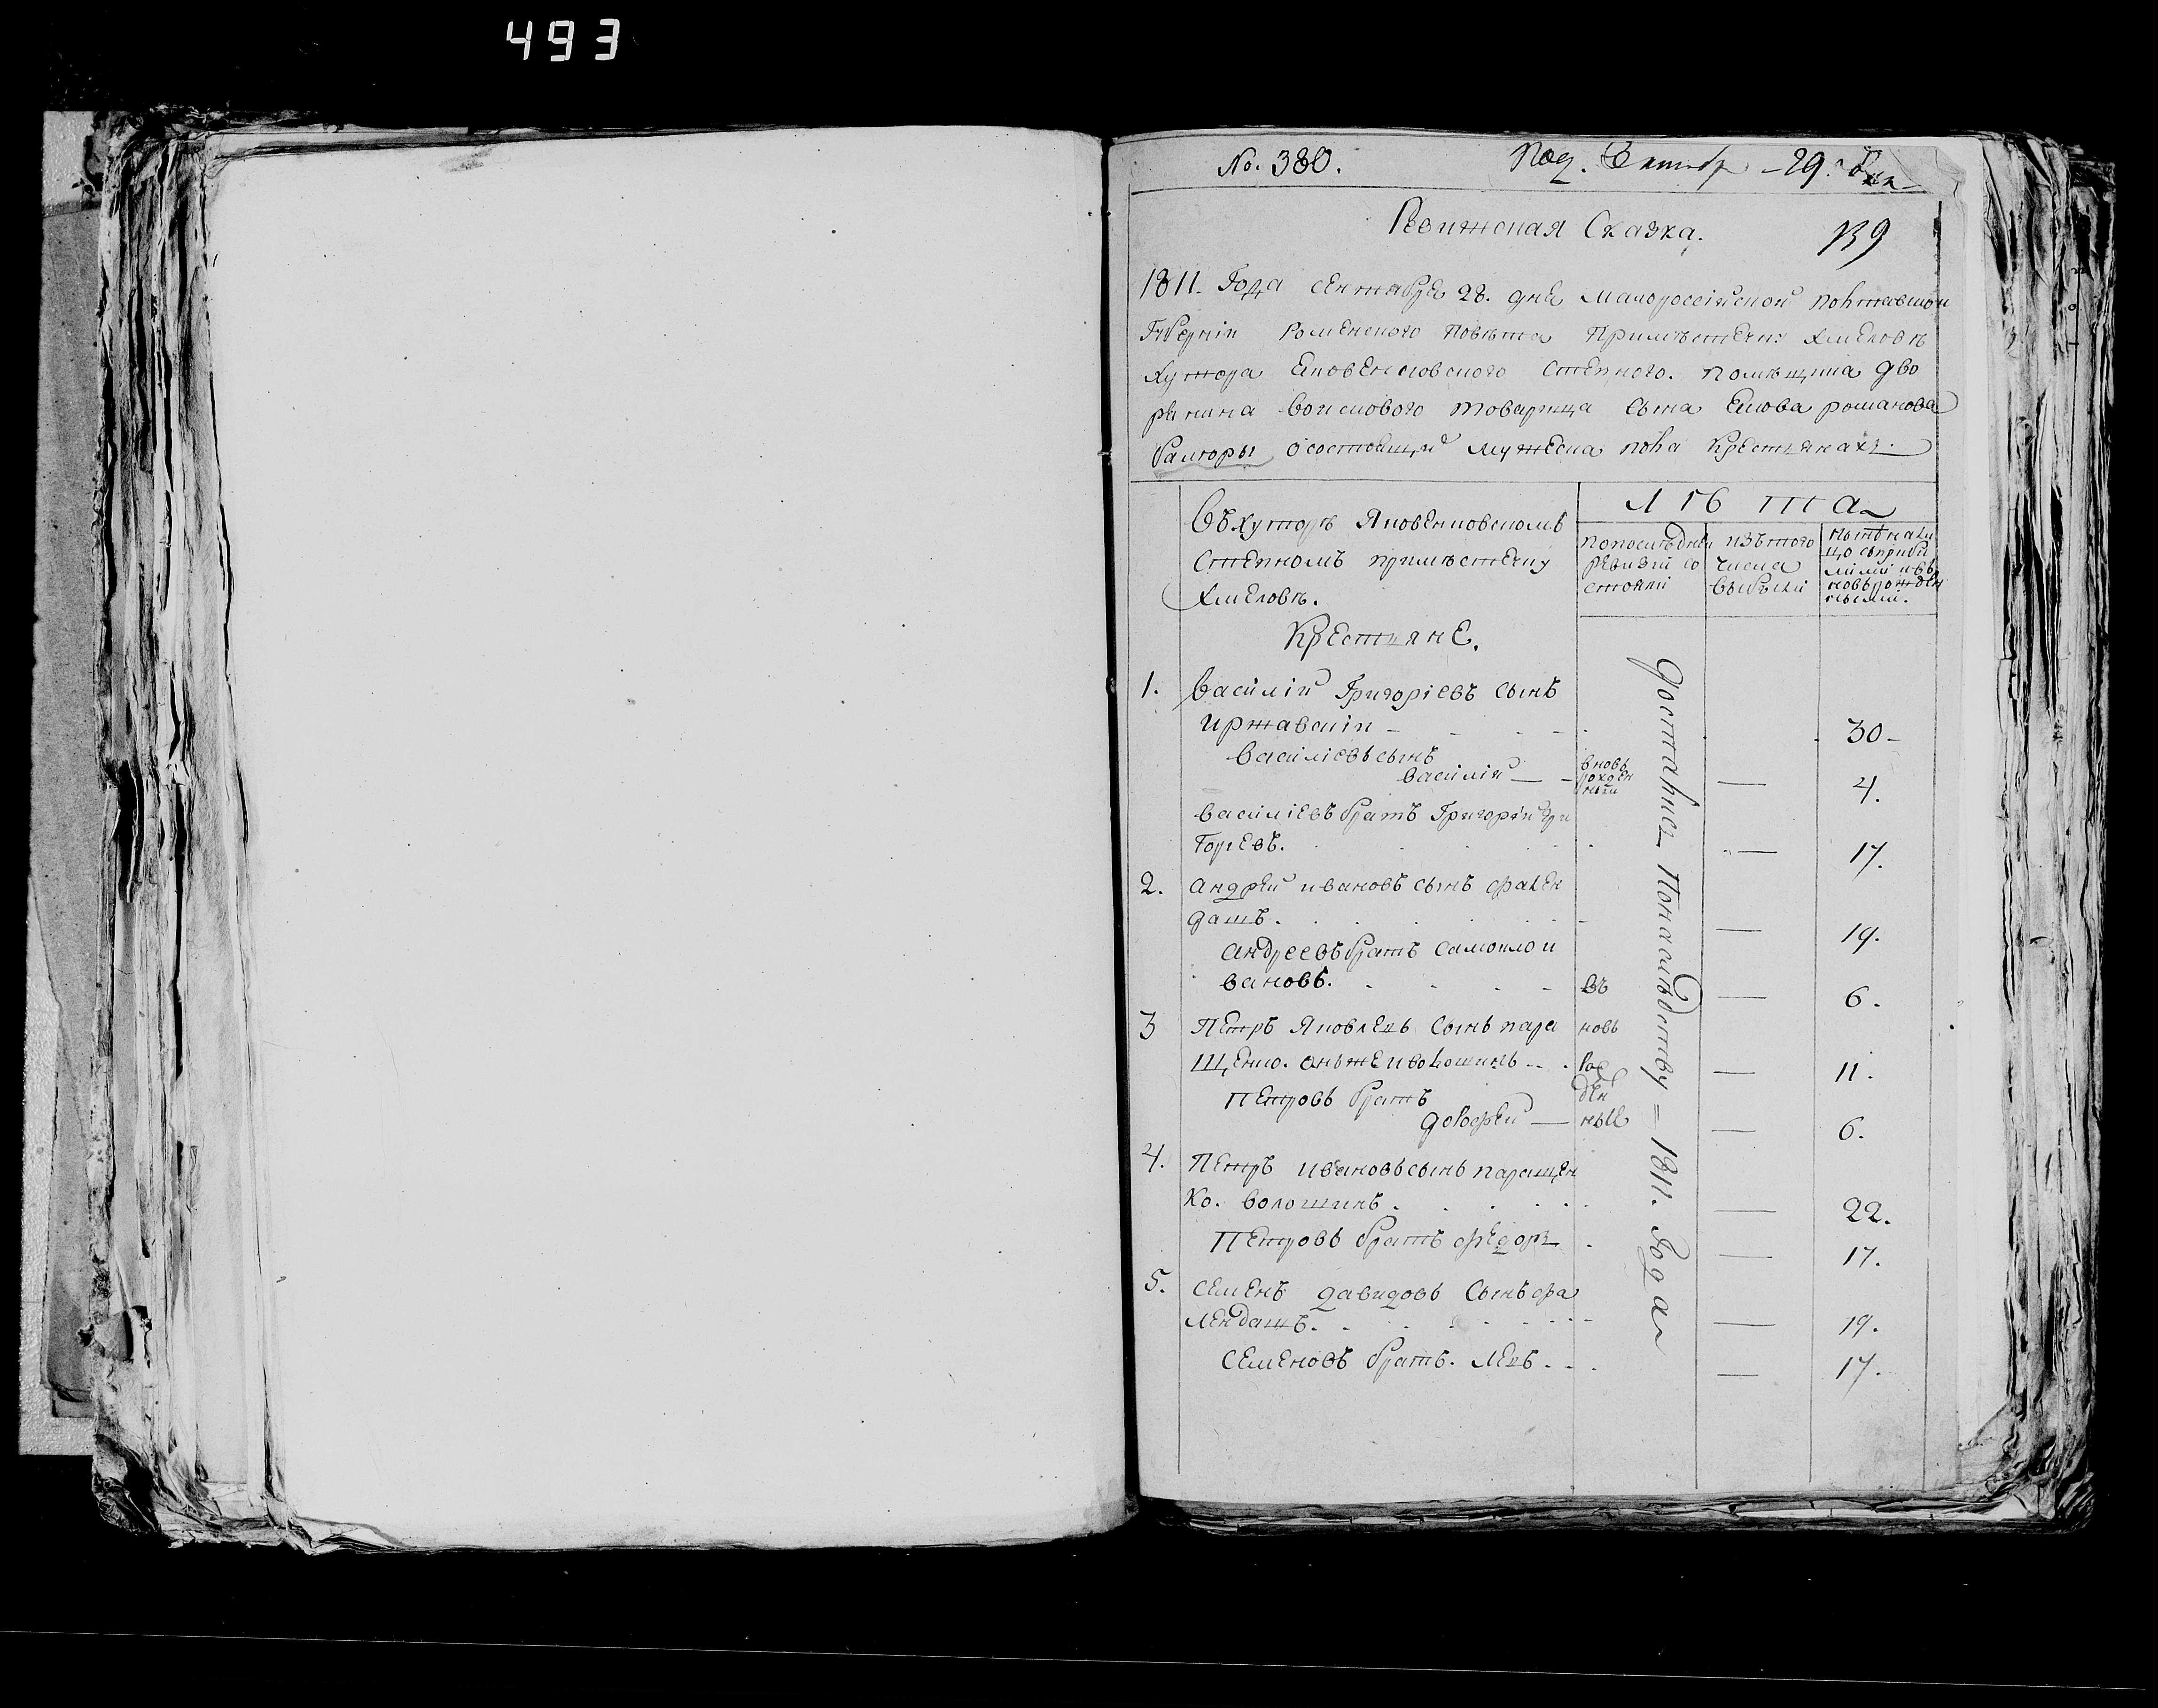 493
No. 380.
Под. Сентябр 29. дня
Ревижская Сказка.
139
1811. Года сентября 28. дня малороссійской полтавшой
Губерніи роменского повѣта Примѣстечкѣ хмеловѣ
хутора Яковенковского степного. помѣщика дво
рянина войскового товарища сына Якова романова
о состоящій мужеска пола Крестянахъ
Въ хуторѣ Яковенковскомъ
степномъ примѣстечку
хмеловѣ.
Лѣта
попослѣдней ревизіи со стояли
изъ того числа выбыли
нынѣ на лицо
Крестяне.
1. василій Григоріевъ сынъ
иржавскій
30
василіевъ сынъ
василій
вновь рожденный
4.
василіевъ братъ Григорій Гри
горіевъ.
17.
2. андрей ивановъ сынъ фален
дашъ.
19.
андреевъ братъ самойло и
вановъ.
въ
6.
3 Петръ Яковлевъ сынъ пара
новь
щенко. онъ же и волошинъ
рож
11.
ден
Петровъ братъ
ные
6.
4. Петръ ивановъ сынъ паращен
ко. волошинъ.
22.
Петровъ братъ федоръ
17.
5. семенъ давидовъ сынъ фа
лендашъ.
19.
семеновъ братъ. левъ.
17.
достались понаслѣдству = 1811. Года